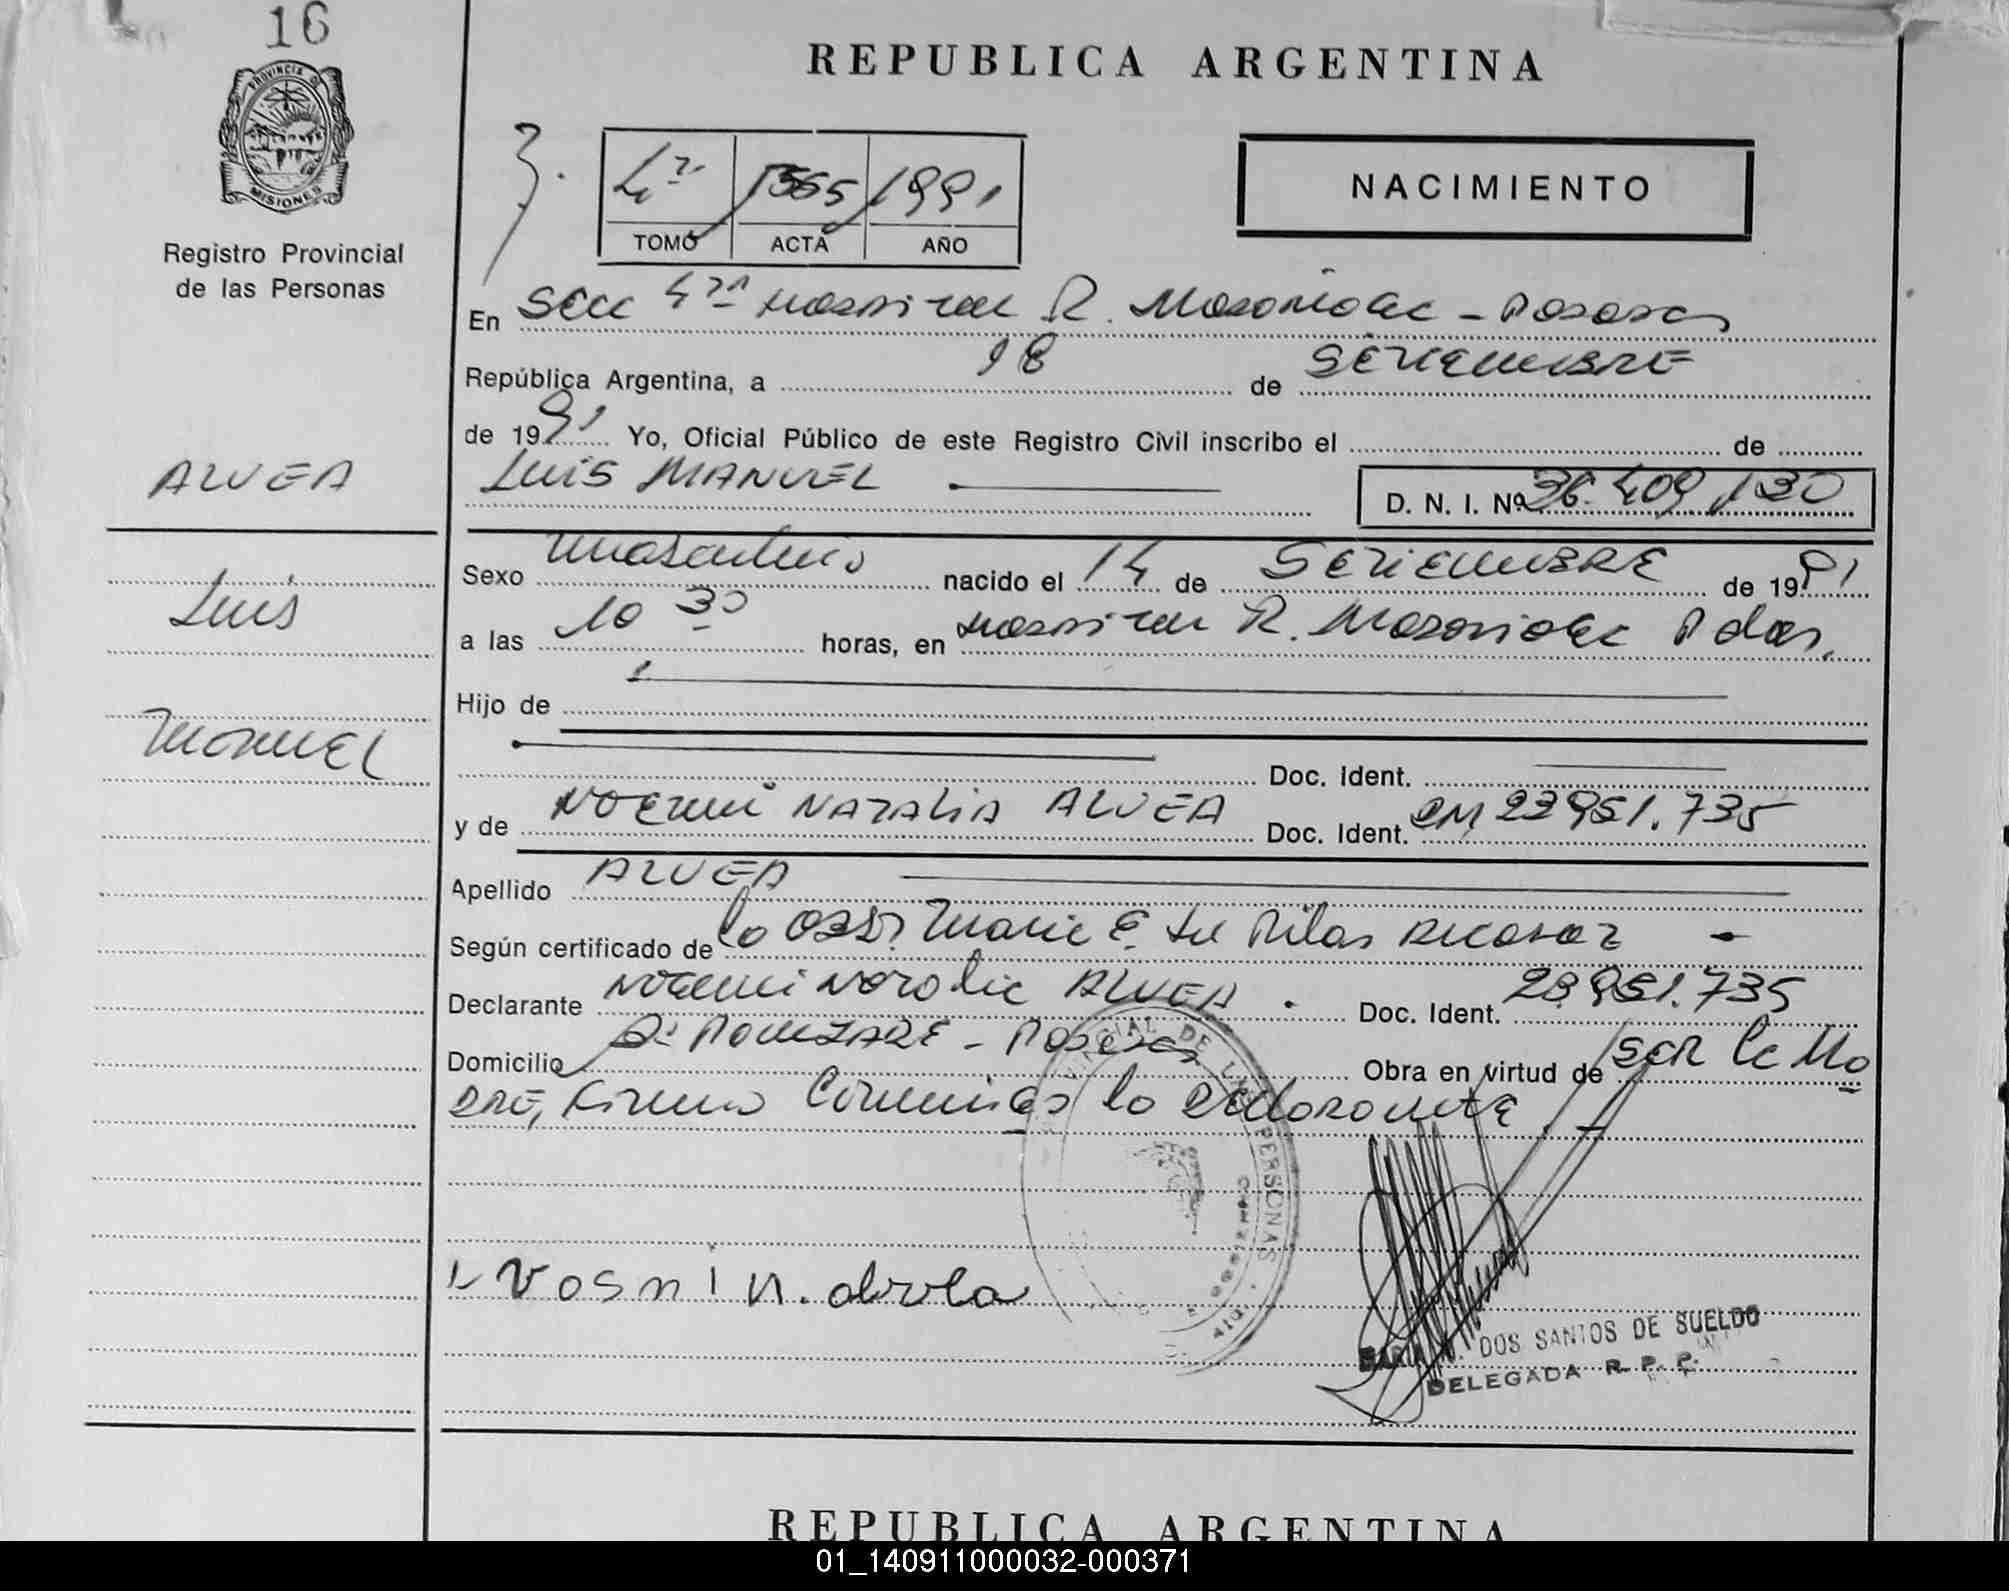 16
REPUBLICA ARGENTINA
PROVINCIA D
MISIONES
Registro Provincial
de las Personas
NACIMIENTO
1991
TOMO ACTA AÑO
En Secc 4ta Hospital R. Madariaga - Posadas
República Argentina, a 18 de SETIEMBRE
de 1991 Yo, Oficial Público de este Registro Civil inscribo el de
ALVEA
LUIS MANUEL
D. N. I. Nº 36.409.130
Sexo masculino nacido el 14 de SETIEMBRE de 1991
Luis
a las 10 30 horas, en Hospital R. Madariaga Pdas.
Hijo de
Manuel
Doc. Ident.
y de NOEMI NATALIA ALVEA Doc. Ident. 951.735
Apellido ALVEA
Según certificado de la Obst. Maria E. del Pilar
Declarante NOEMI Natalia ALVEA . Doc. Ident. 951.735
Domicilio - Posadas Obra en virtud de ser la Ma
dre, Firma Conmigo la declarante
DE LAS PERSONAS
DOS SANTOS DE SUELDO
DELEGADA R. P. P.
REPUBLICA ARGENTINA
01_140911000032-000371